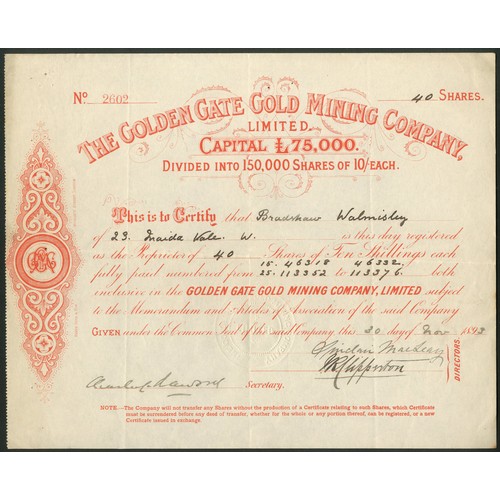 Nº 2602
40 SHARES.
THE GOLDEN GATE GOLD MINING COMPANY,
LIMITED.
CAPITAL £75,000.
DIVIDED INTO 150,000 SHARES OF 10/- EACH.
This is to Certify that Bradshaw Walmisley
of 23. Maida Vale. W. is this day registered
as the Proprietor of 40 Shares of Ten Shillings each
15. 46318 46332.
fully paid numbered from 25. 113352 to 113376. both
inclusive in the GOLDEN GATE GOLD MINING COMPANY, LIMITED subject
to the Memorandum and Articles of Association of the said Company
GIVEN under the Common Seal of the said Company this 30 day of Nov 1893
DIRECTORS.
Secretary.
NOTE.—The Company will not transfer any Shares without the production of a Certificate relating to such Shares, which Certificate
must be surrendered before any deed of transfer, whether for the whole or any portion thereof, can be registered, or a new
Certificate issued in exchange.